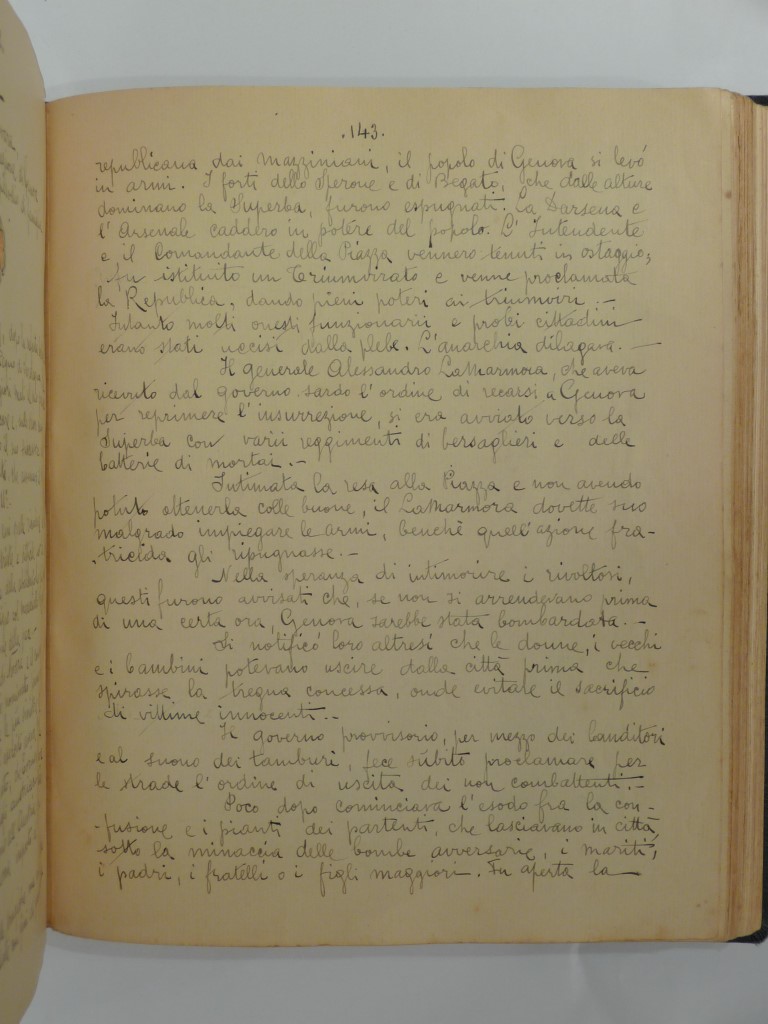 .143.
republicana dai Mazziniani, il popolo di Genova si levò
in armi. I forti dello Sperone e di Begato, che dalle alture
dominano la Superba, furono espugnati. La Darsena e
l'Arsenale caddero in potere del popolo. L'Intendente
e il Comandante della Piazza vennero tenuti in ostaggio;
fu istituito un Triumvirato e venne proclamata
la Repubblica, dando pieni poteri ai triumviri.—
Intanto molti onesti funzionarii e probi cittadini
erano stati uccisi dalla plebe. L'anarchia dilagava.—
Il generale Alessandro LaMarmora, che aveva
ricevuto dal governo sardo l'ordine di recarsi a Genova
per reprimere l'insurrezione, si era avviato verso la
Superba con varii reggimenti di bersaglieri e delle
batterie di mortai.—
Intimata la resa alla Piazza e non avendo
potuto ottenerla colle buone, il LaMarmora dovette suo
malgrado impiegare le armi, benchè quell'azione fra-
tricida gli ripugnasse.—
Nella speranza di intimorire i rivoltosi,
questi furono avvisati che, se non si arrendevano prima
di una certa ora, Genova sarebbe stata bombardata.—
Si notificò loro altresì che le donne, i vecchi
e i bambini potevano uscire dalla città prima che
spirasse la tregua concessa, onde evitare il sacrificio
di vittime innocenti.—
Il governo provvisorio, per mezzo dei banditori
e al suono dei tamburi, fece subito proclamare per
le strade l'ordine di uscita dei non combattenti.—
Poco dopo cominciava l'esodo fra la con-
-fusione e i pianti dei partenti, che lasciavano in città,
sotto la minaccia delle bombe avversarie, i mariti,
i padri, i fratelli o i figli maggiori. Fu aperta la